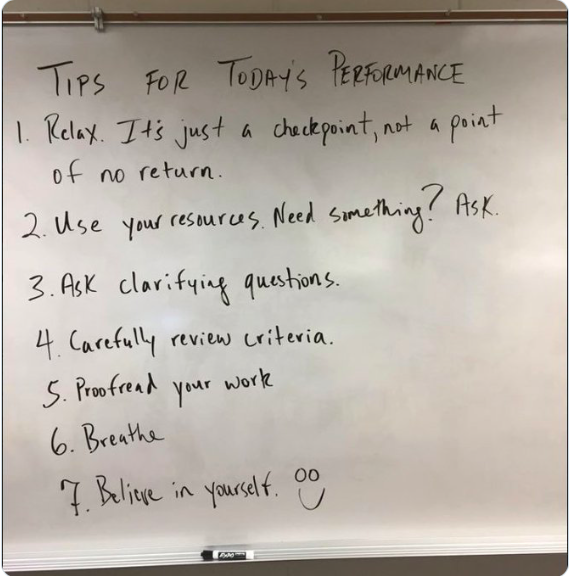 TIPS FOR TODAY'S PERFORMANCE
1. Relax. It's just a checkpoint, not a point
of no return.
2. Use your resources. Need something? ASK.
3. ASK clarifying questions.
4. Carefully review criteria.
5. Proofread your work
6. Breathe
7. Believe in yourself.
EXPO